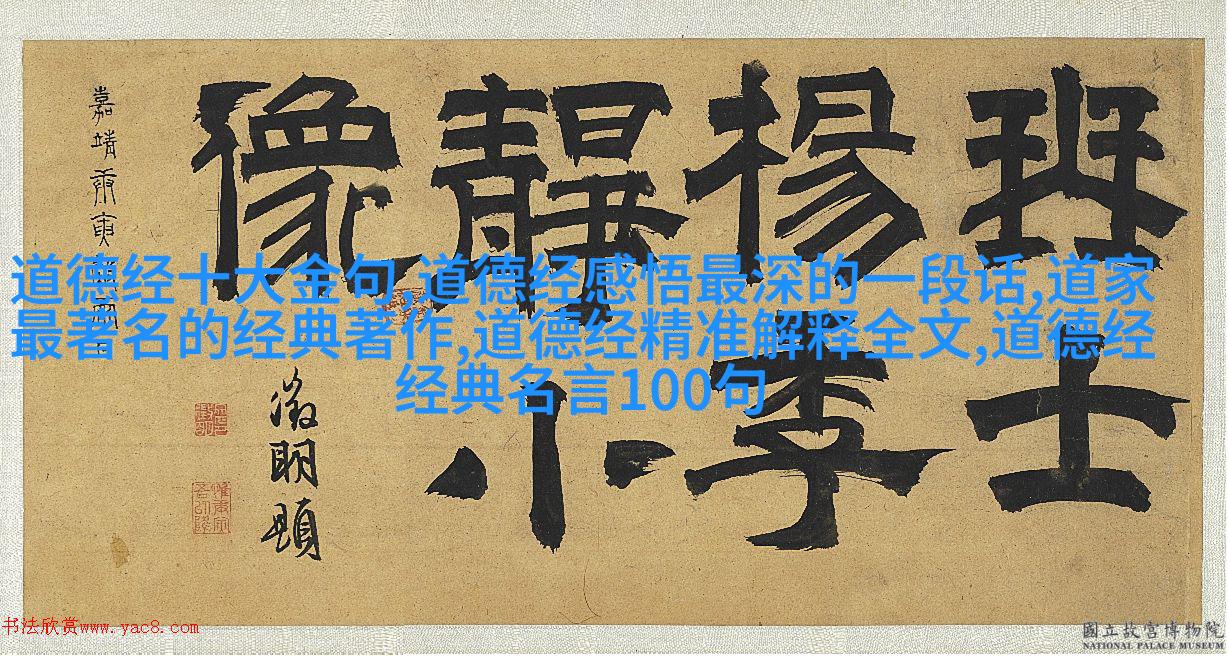 珡士
楊季
靜小
像
徵明題
嘉靖庚寅
道德经十大金句,道德经感悟最深的一段话,道家
最著名的经典著作,道德经精准解释全文,道德经
经典名言100句
书法欣赏www.yac8.com
國立故宮博物院
NATIONAL PALACE MUSEUM